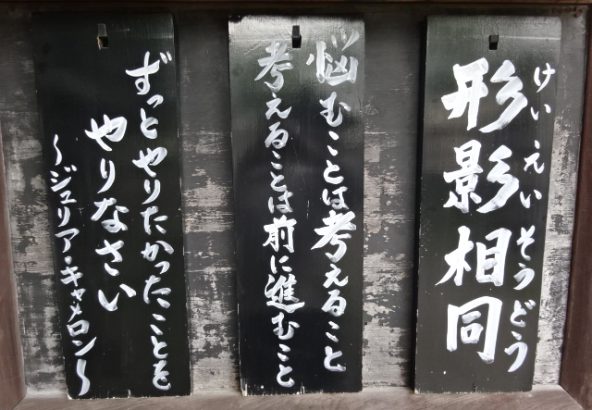 けいえいそうどう
形影相同
悩むことは考えること
考えることは前に進むこと
ずっとやりたかったことを
やりなさい
～ジュリア・キャメロン～